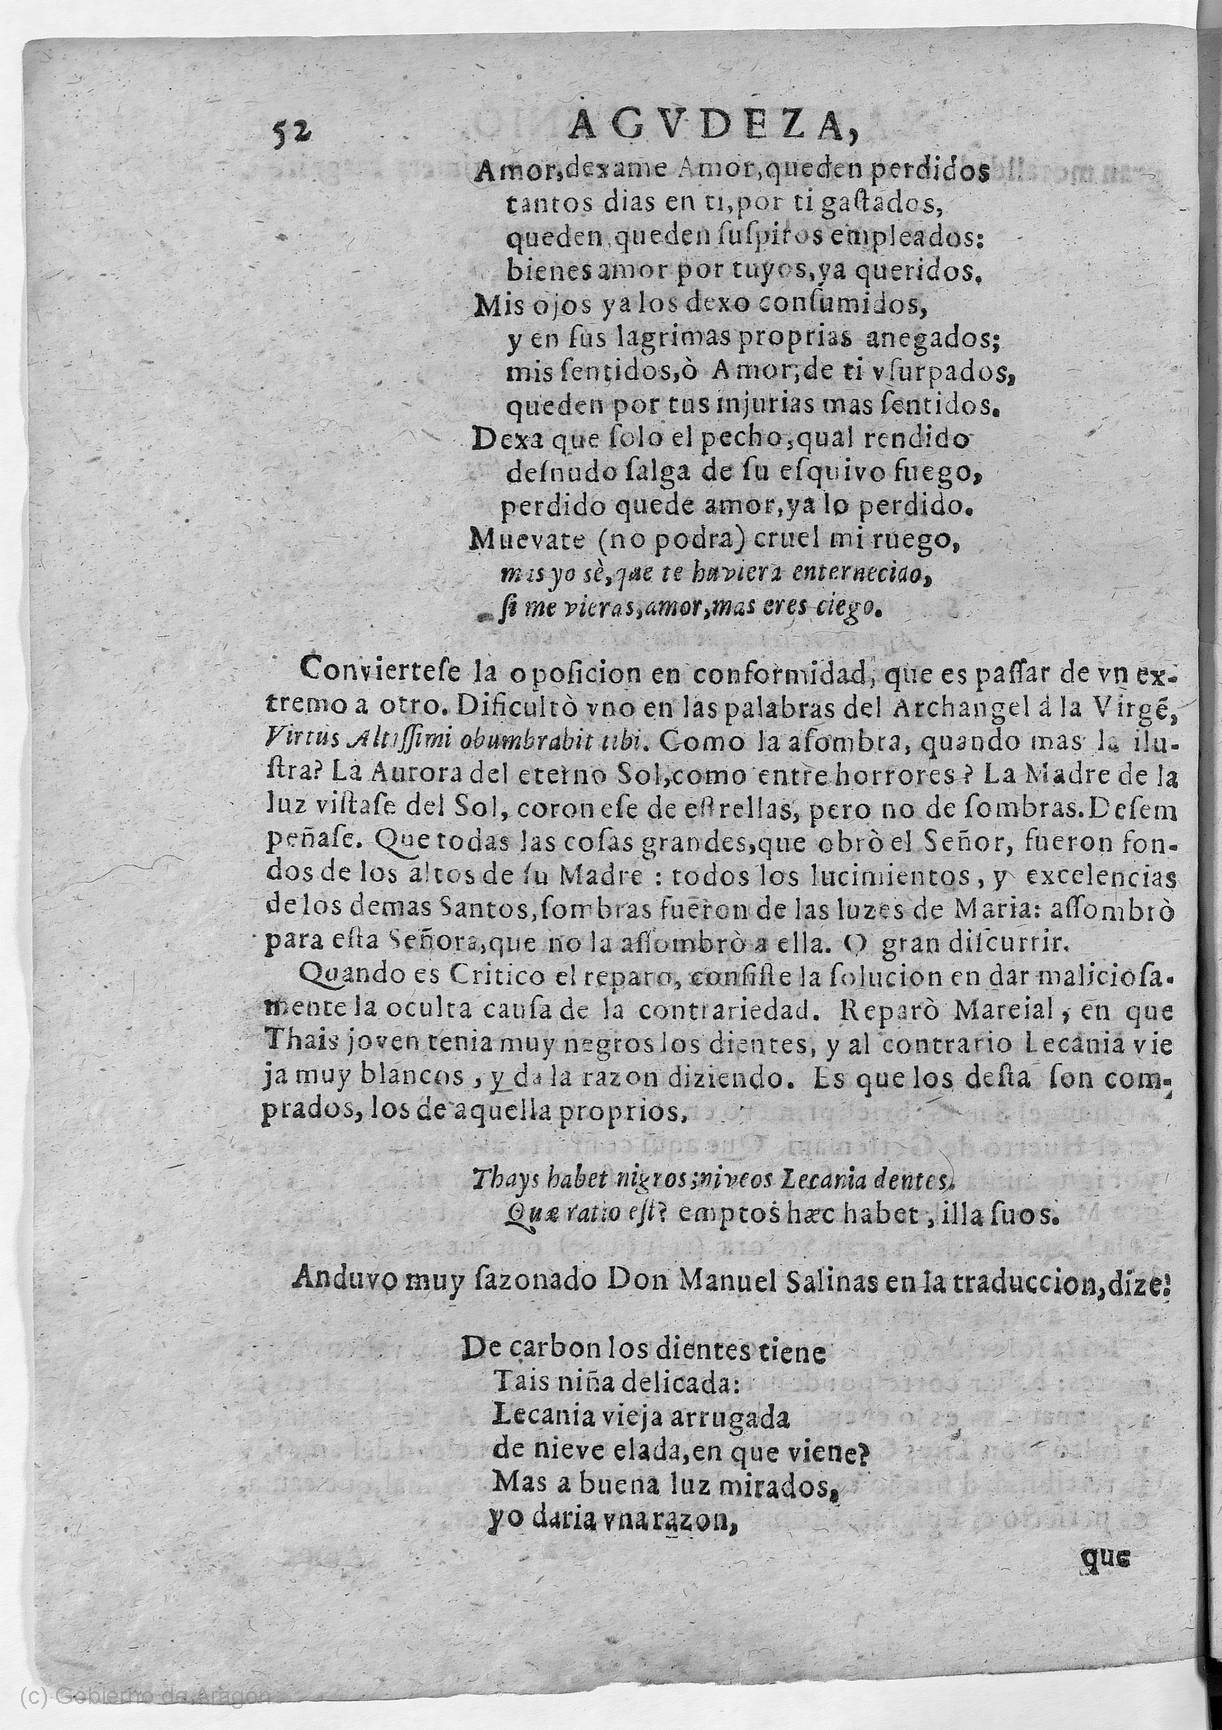 52 AGVDEZA,
Amor,dexame Amor,queden perdidos
tantos dias en ti,por ti gaſtados,
queden,queden ſuſpiros empleados:
bienes amor por tuyos,ya queridos.
Mis ojos ya los dexo conſumidos,
y en ſus lagrimas proprias anegados;
mis ſentidos,ò Amor,de ti vſurpados,
queden por tus injurias mas ſentidos.
Dexa que ſolo el pecho,qual rendido
deſnudo ſalga de ſu eſquivo fuego,
perdido quede amor,ya lo perdido.
Muevate (no podra) cruel mi ruego,
mas yo sè,que te huviera enternecido,
ſi me vieras,amor,mas eres ciego.
Conviertеſe la opoſicion en conformidad, que es paſſar de vn ex-
tremo a otro. Dificultò vno en las palabras del Archangel á la Virgẽ,
Virtus Altiſſimi obumbrabit tibi. Como la aſombra, quando mas la ilu-
ſtra? La Aurora del eterno Sol,como entre horrores? La Madre de la
luz viſtaſe del Sol, coroneſe de eſtrellas, pero no de ſombras.Deſem
peñaſe. Que todas las coſas grandes,que obrò el Señor, fueron fon-
dos de los altos de ſu Madre : todos los lucimientos, y excelencias
de los demas Santos,ſombras fueron de las luzes de Maria: aſſombrò
para eſta Señora,que no la aſſombrò a ella. O gran diſcurrir.
Quando es Critico el reparo, conſiſte la ſolucion en dar malicioſa-
mente la oculta cauſa de la contrariedad. Reparò Marcial, en que
Thais joven tenia muy negros los dientes, y al contrario Lecania vie
ja muy blancos, y da la razon diziendo. Es que los deſta ſon com-
prados, los de aquella proprios.
Thays habet nigros;niveos Lecania dentes.
Quæ ratio eſt? emptos hæc habet, illa ſuos.
Anduvo muy ſazonado Don Manuel Salinas en la traduccion,dize:
De carbon los dientes tiene
Tais niña delicada:
Lecania vieja arrugada
de nieve elada,en que viene?
Mas a buena luz mirados,
yo daria vna razon,
que
(c) Gobierno de Aragón